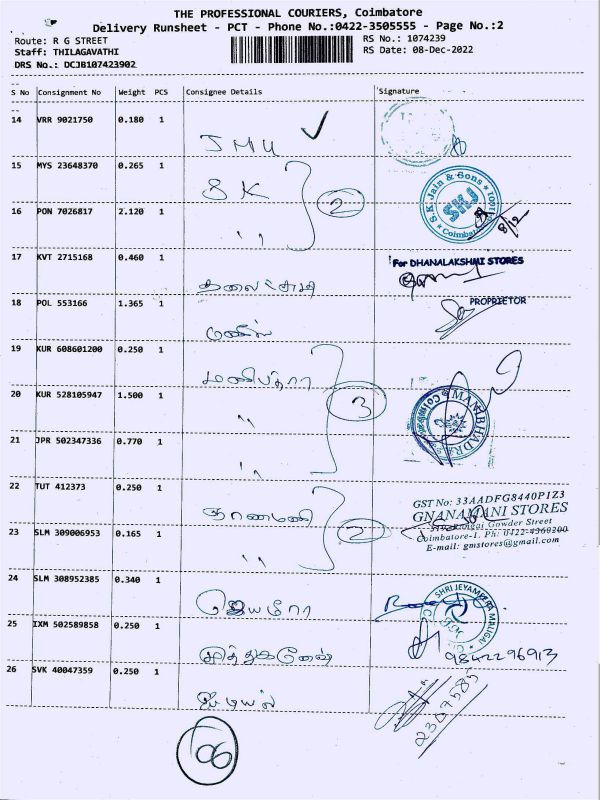 THE PROFESSIONAL COURIERS, Coimbatore
Delivery Runsheet - PCT - Phone No.:0422-3505555 - Page No.:2
Route: R G STREET
RS No.: 1074239
Staff: THILAGAVATHI
RS Date: 08-Dec-2022
DRS No.: DCJB107423902
S No Consignment No Weight PCS Consignee Details Signature
14 VRR 9021750 0.180 1
JMU
15 MYS 23648370 0.265 1
S K
2
S.K. Jain & Sons
SKJ
Coimbatore
16 PON 7026817 2.120 1
"
8/12
17 KVT 2715168 0.460 1
For DHANALAKSHMI STORES
PROPRIETOR
18 POL 553166 1.365 1
19 KUR 608601200 0.250 1
மணிபத்ரா
20 KUR 528105947 1.500 1
"
3
MANIBHADRA
21 JPR 502347336 0.770 1
"
22 TUT 412373 0.250 1
ஞானமணி
2
GST No: 33AADFG8440P1Z3
GNANAMANI STORES
Gowder Street
Coimbatore-1. Ph: 0422-4360200
E-mail: gmstores@gmail.com
23 SLM 309006953 0.165 1
"
24 SLM 308952385 0.340 1
ஜெயமீரா
SHRI JEYAMEERA MALIGAI
25 IXM 502589858 0.250 1
9842296913
26 SVK 40047359 0.250 1
06